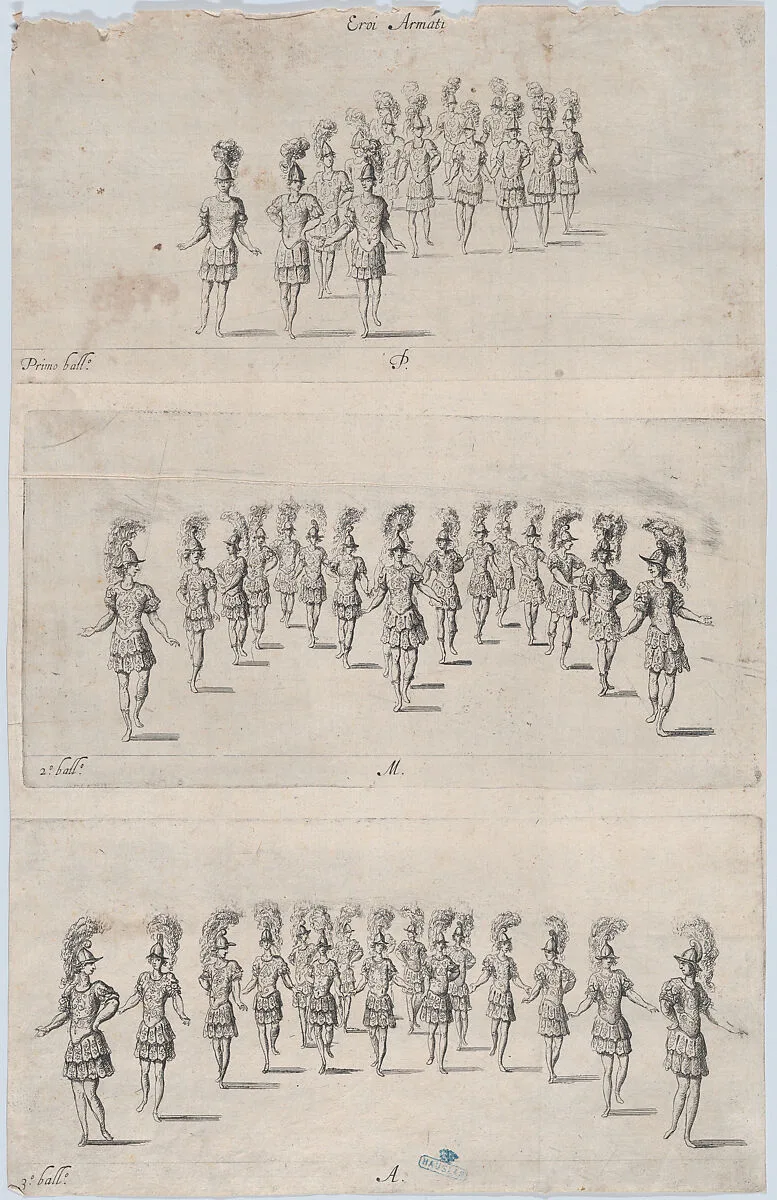 Eroi Armati
Primo ball.º
P.
2.º ball.º
M.
3.º ball.º
A.
HAUSLAB